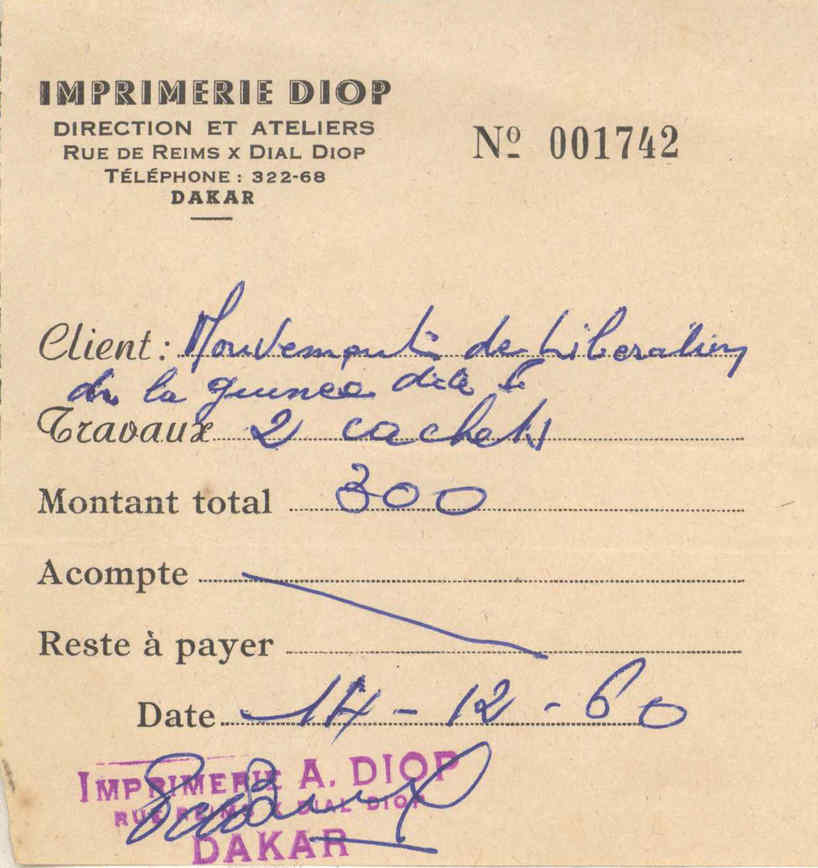 IMPRIMERIE DIOP
DIRECTION ET ATELIERS
RUE DE REIMS X DIAL DIOP
TÉLÉPHONE : 322-68
DAKAR
Nº 001742
Client : Mouvement de Liberation
de la guinee dite
Travaux 2 cachets
Montant total 300
Acompte
Reste à payer
Date 14-12-60
IMPRIMERIE A. DIOP
RUE REIMS X DIAL DIOP
DAKAR